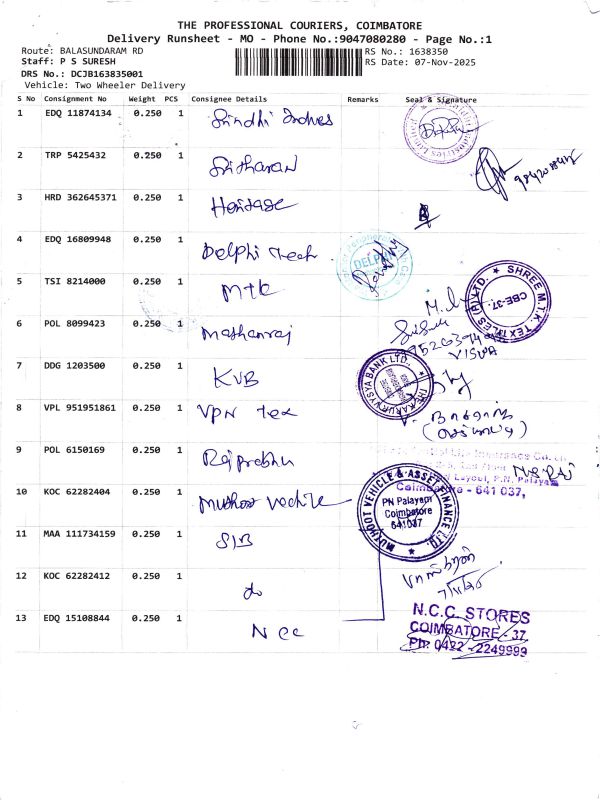 THE PROFESSIONAL COURIERS, COIMBATORE
Delivery Runsheet - MO - Phone No.:9047080280 - Page No.:1
Route: BALASUNDARAM RD
RS No.: 1638350
Staff: P S SURESH
RS Date: 07-Nov-2025
DRS No.: DCJB163835001
Vehicle: Two Wheeler Delivery
S No Consignment No Weight PCS Consignee Details Remarks Seal & Signature
1 EDQ 11874134 0.250 1 Sindhi
2 TRP 5425432 0.250 1 Sritharan
3 HRD 362645371 0.250 1 Heritage
4 EDQ 16809948 0.250 1 Delphi Tech
DELPHI
5 TSI 8214000 0.250 1 MTK
SHREE M.T.K. TEXTILES (P) LTD.
CBE-37.
6 POL 8099423 0.250 1 Mathanraj
VISWA
7 DDG 1203500 0.250 1 KVB
THE KARUR VYSYA BANK LTD.
8 VPL 951951861 0.250 1 VPN Tex
9 POL 6150169 0.250 1 Rajprabhu
Coimbatore - 641 037,
10 KOC 62282404 0.250 1 Muthoot Vechile
MUTHOOT VEHICLE & ASSET FINANCE LTD.
PN Palayam
Coimbatore
641037
11 MAA 111734159 0.250 1 SIB
12 KOC 62282412 0.250 1 do
13 EDQ 15108844 0.250 1 NCC
N.C.C. STORES
COIMBATORE - 37.
Ph: 0422 - 2249999